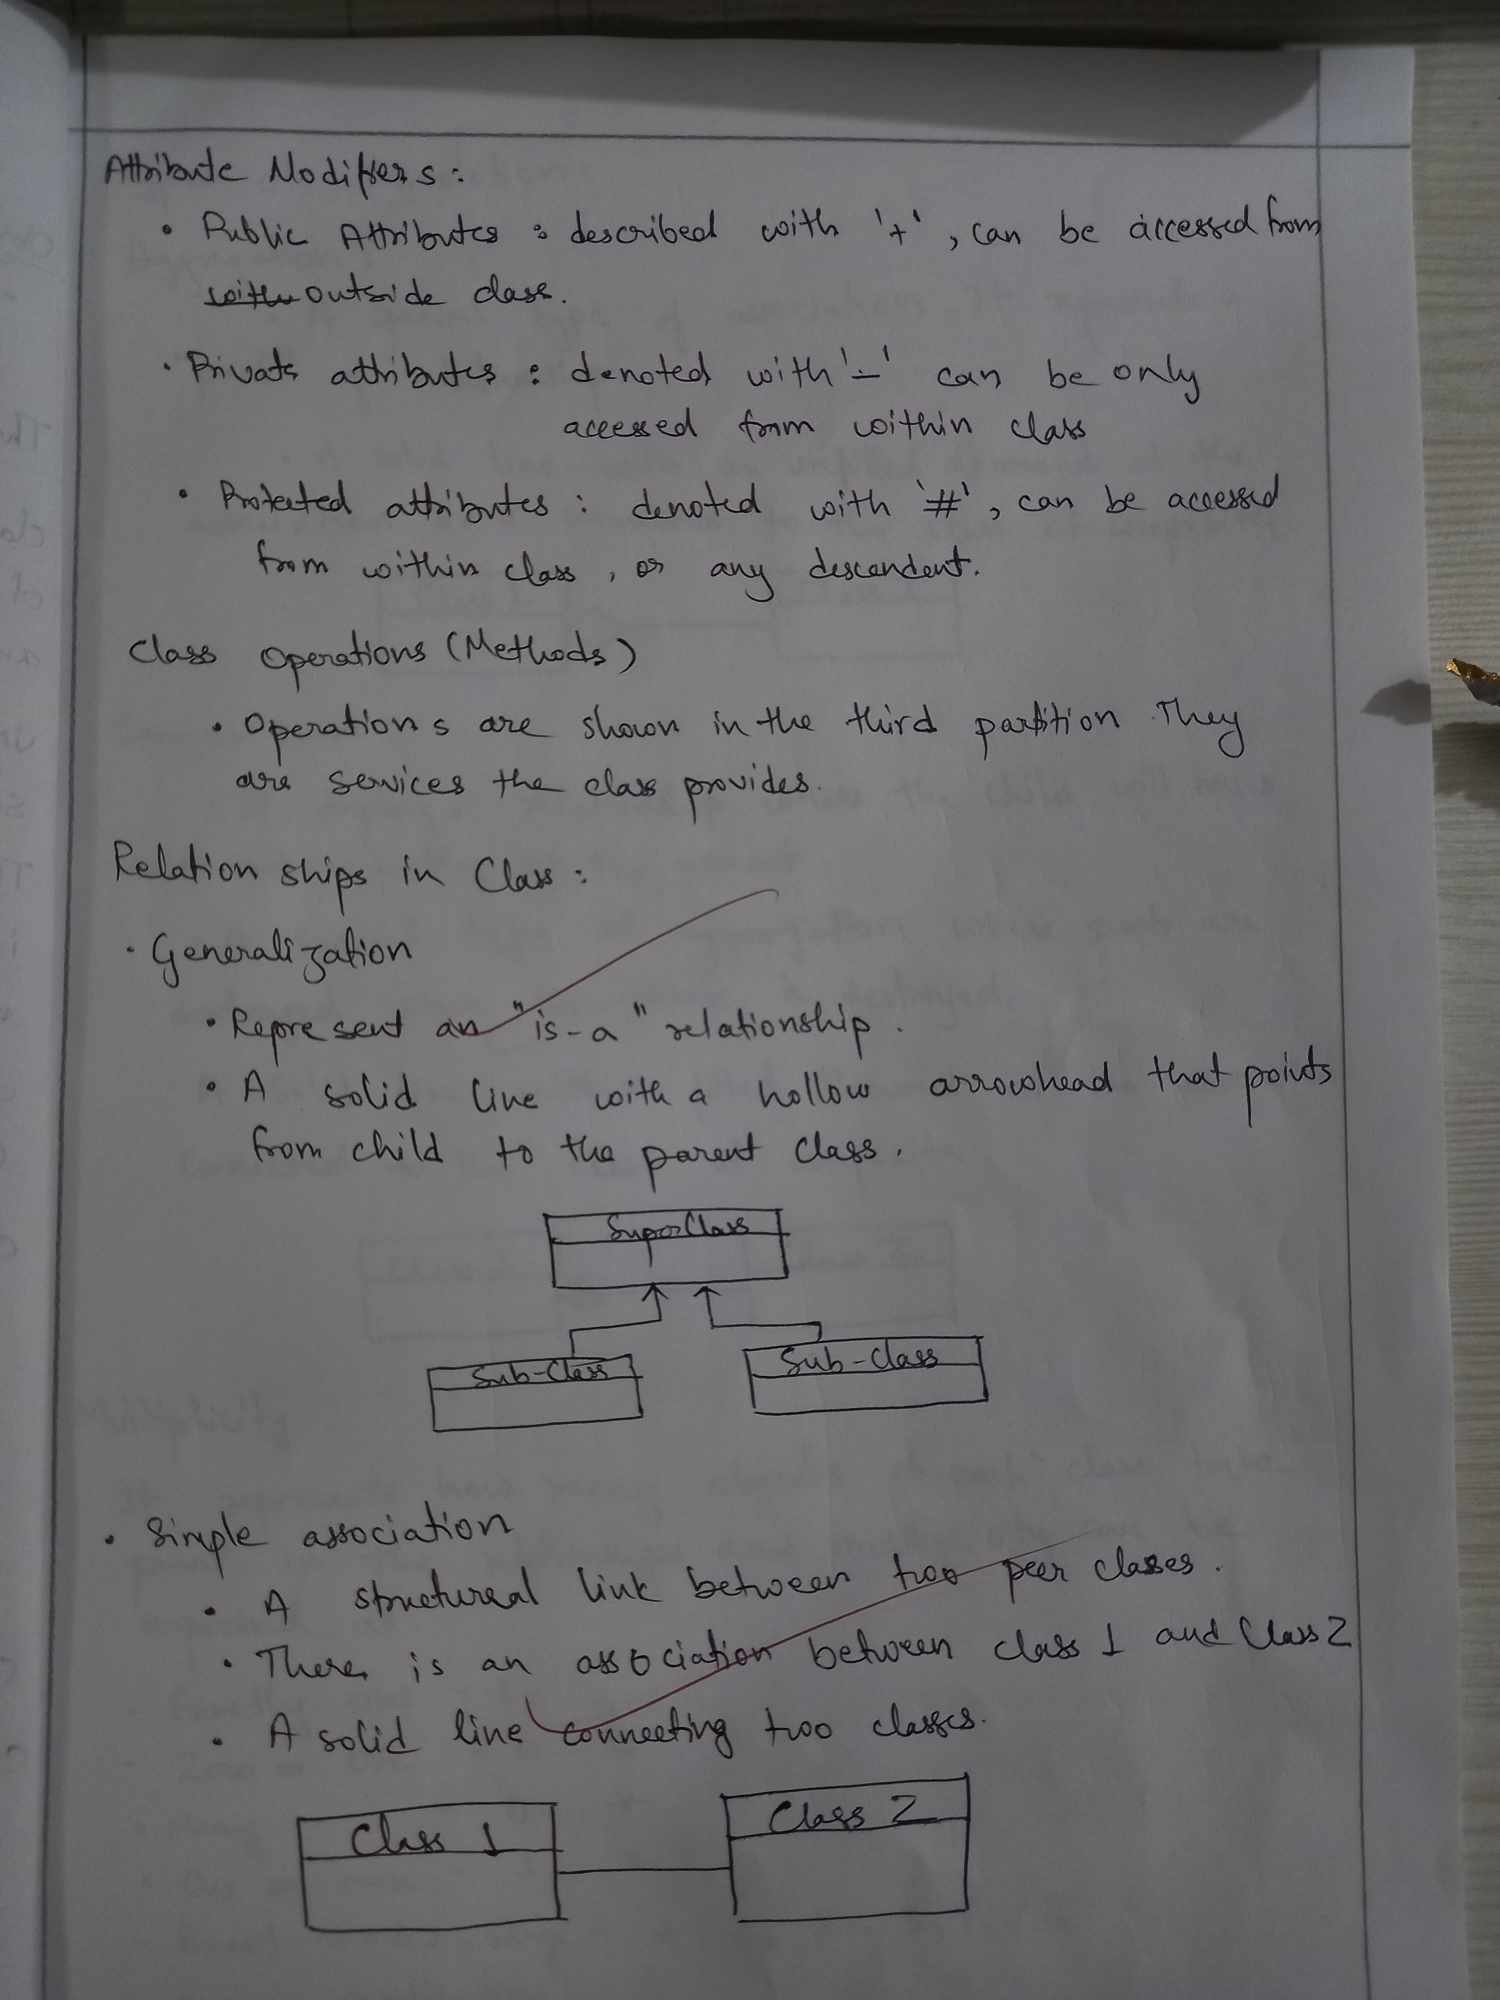 Attribute Modifiers :
• Public Attributes : described with '+', can be accessed from
with outside class.
• Private attributes : denoted with '-' can be only
accessed from within class
• Protected attributes : denoted with '#', can be accessed
from within class, or any descendent.
Class Operations (Methods)
• Operations are shown in the third partition They
are services the class provides.
Relation ships in Class :
• Generalization
• Represent an "is-a" relationship.
• A solid line with a hollow arrowhead that points
from child to the parent class.
SuperClass
Sub-Class Sub-Class
• Simple association
• A structureal link between two peer classes.
• There is an association between class 1 and Class 2
• A solid line connecting two classes.
Class 1 Class 2